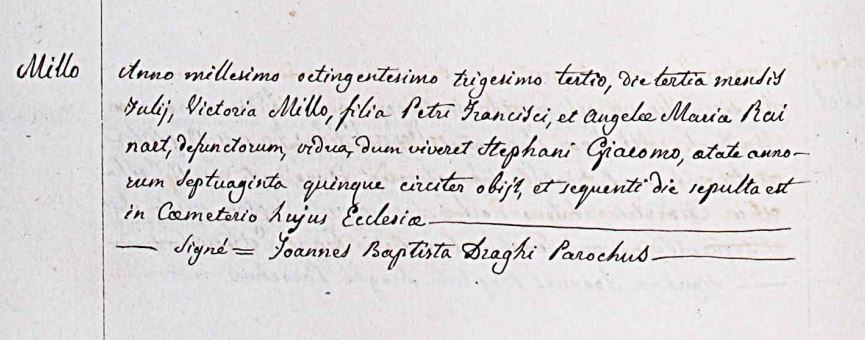 Millo
Anno millesimo octingentesimo trigesimo tertio, die tertia mensis
Julij, Victoria Millo, filia Petri Francisci, et Angelæ Mariæ Rai
naut, defunctorum, vidua, dum viveret Stephani Giacomo, ætate anno-
rum septuaginta quinque circiter obijt, et sequenti die sepulta est
in Cœmeterio hujus Ecclesiæ
Signé = Joannes Baptista Draghi Parochus